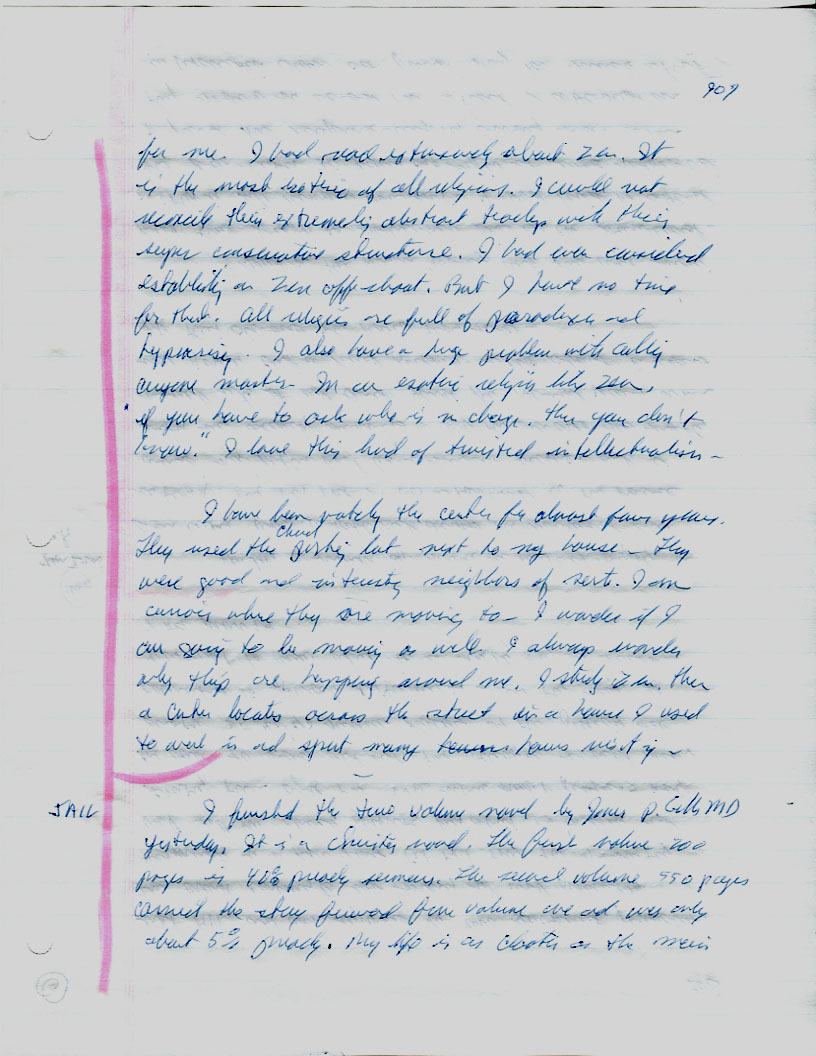 909
for me. I had read extensively about Zen. It
is the most esoteric of all religions. I could not
reconcile their extremely abstract teachings with their
super conservative structure. I had even considered
establishing a Zen off-shoot. But I have no time
for that. All religions are full of paradoxes and
hypocrisy. I also have a huge problem with calling
anyone master. In an esoteric religion like Zen,
"if you have to ask who is in charge, then you don't
know." I love this kind of twisted intellectualism -
I have been watching the center for almost four years.
They used the church parking lot next to my house - They
were good and interesting neighbors of sort. I am
curious where they are moving to - I wonder if I
am going to be moving as well. I always wonder
why things are happening around me. I study Zen, then
a center locates across the street in a house I used
to work in and spent many hours visiting -
JAIL
I finished the two volume novel by James P. MD
yesterday. It is a Christian novel. The first volume 200
pages is 40% preachy sermons. The second volume 550 pages
carried the story forward from volume one and was only
about 5% preachy. My life is as as the main